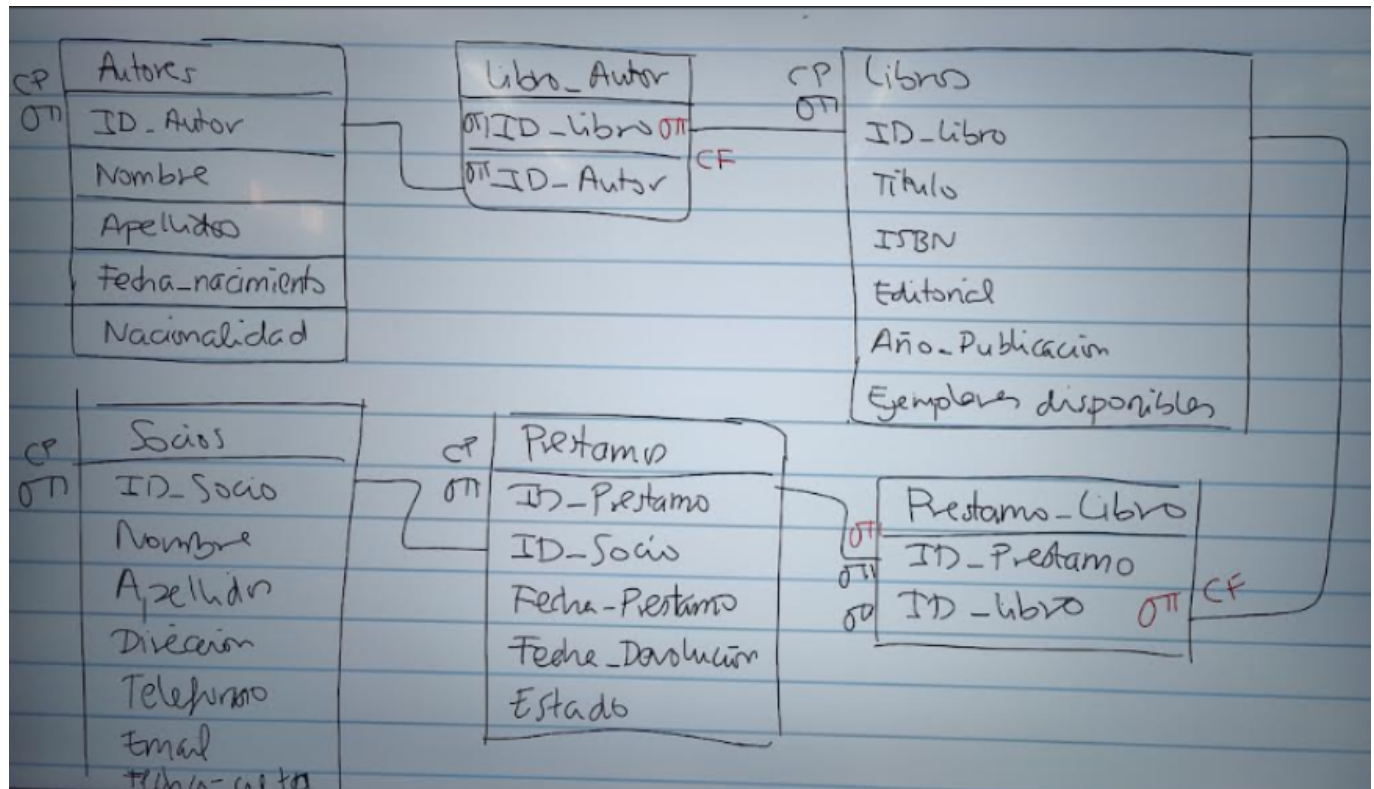 Autores
CP
ID_Autor
Nombre
Apellidos
Fecha_nacimiento
Nacionalidad
Libro_Autor
ID_Libro
CF
ID_Autor
CP
Libros
ID_Libro
Titulo
ISBN
Editorial
Año_Publicacion
Ejemplares disponibles
CP
Socios
ID_Socio
Nombre
Apellidos
Direccion
Telefono
Email
CP
Prestamo
ID_Prestamo
ID_Socio
Fecha_Prestamo
Fecha_Devolución
Estado
Prestamo_Libro
ID_Prestamo
ID_Libro
CF